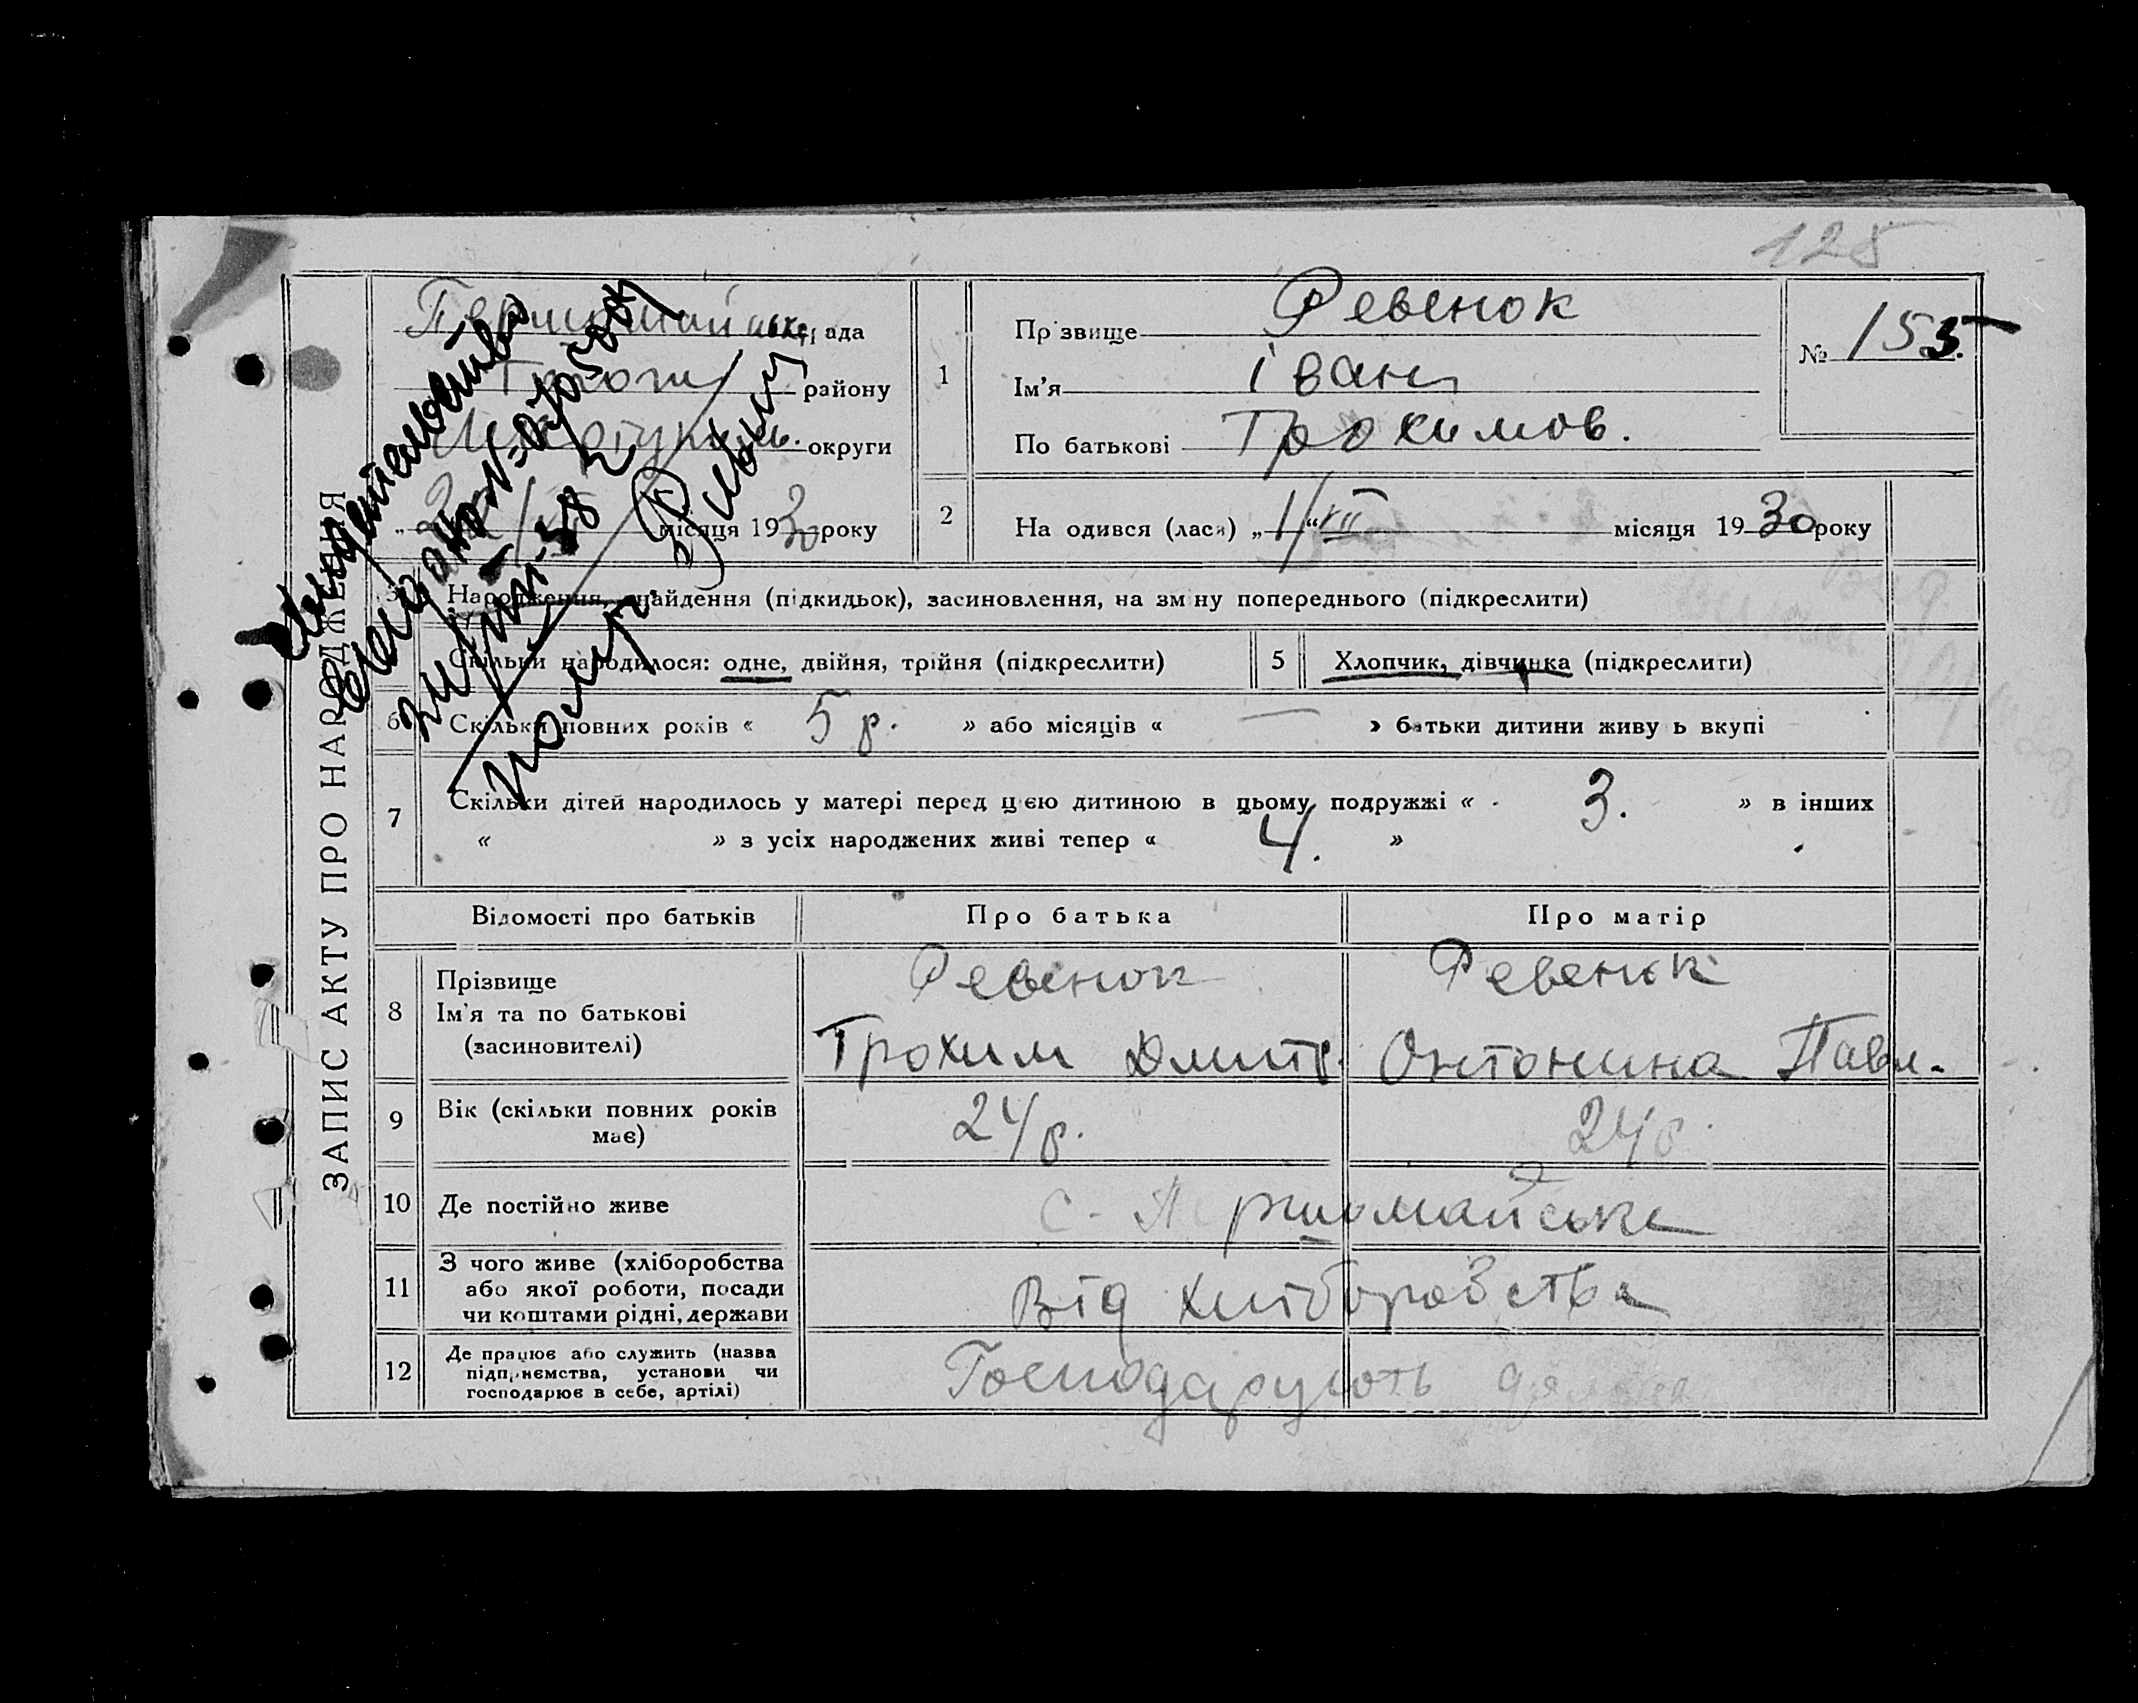 125
ЗАПИС АКТУ ПРО НАРОДЖЕННЯ
Першомайська рада
району
округи
місяця 1930 року
1
Прізвище Ревенок
Ім'я Іван
По батькові Трохимов.
№ 155.
2
Народився (лася) „1/“ VII місяця 1930 року
3
Народження, знайдення (підкидьок), засиновлення, на зміну попереднього (підкреслити)
Скільки народилося: одне, двійня, трійня (підкреслити)
5
Хлопчик, дівчинка (підкреслити)
6
Скільки повних років « 5 р. » або місяців « — » батьки дитини живуть вкупі
7
Скільки дітей народилось у матері перед цією дитиною в цьому подружжі « 3. » в інших
« » з усіх народжених живі тепер « 4. »
Відомості про батьків
Про батька
Про матір
8
Прізвище
Ім'я та по батькові
(засиновителі)
Ревенок
Трохим Дмитр.
Ревенок
Онтонина Павл.
9
Вік (скільки повних років
має)
24 р.
24 р.
10
Де постійно живе
с. Першомайське
11
З чого живе (хліборобства
або якої роботи, посади
чи коштами рідні, держави
Від хліборобства
12
Де працює або служить (назва
підприємства, установи чи
господарює в себе, артілі)
Господарують